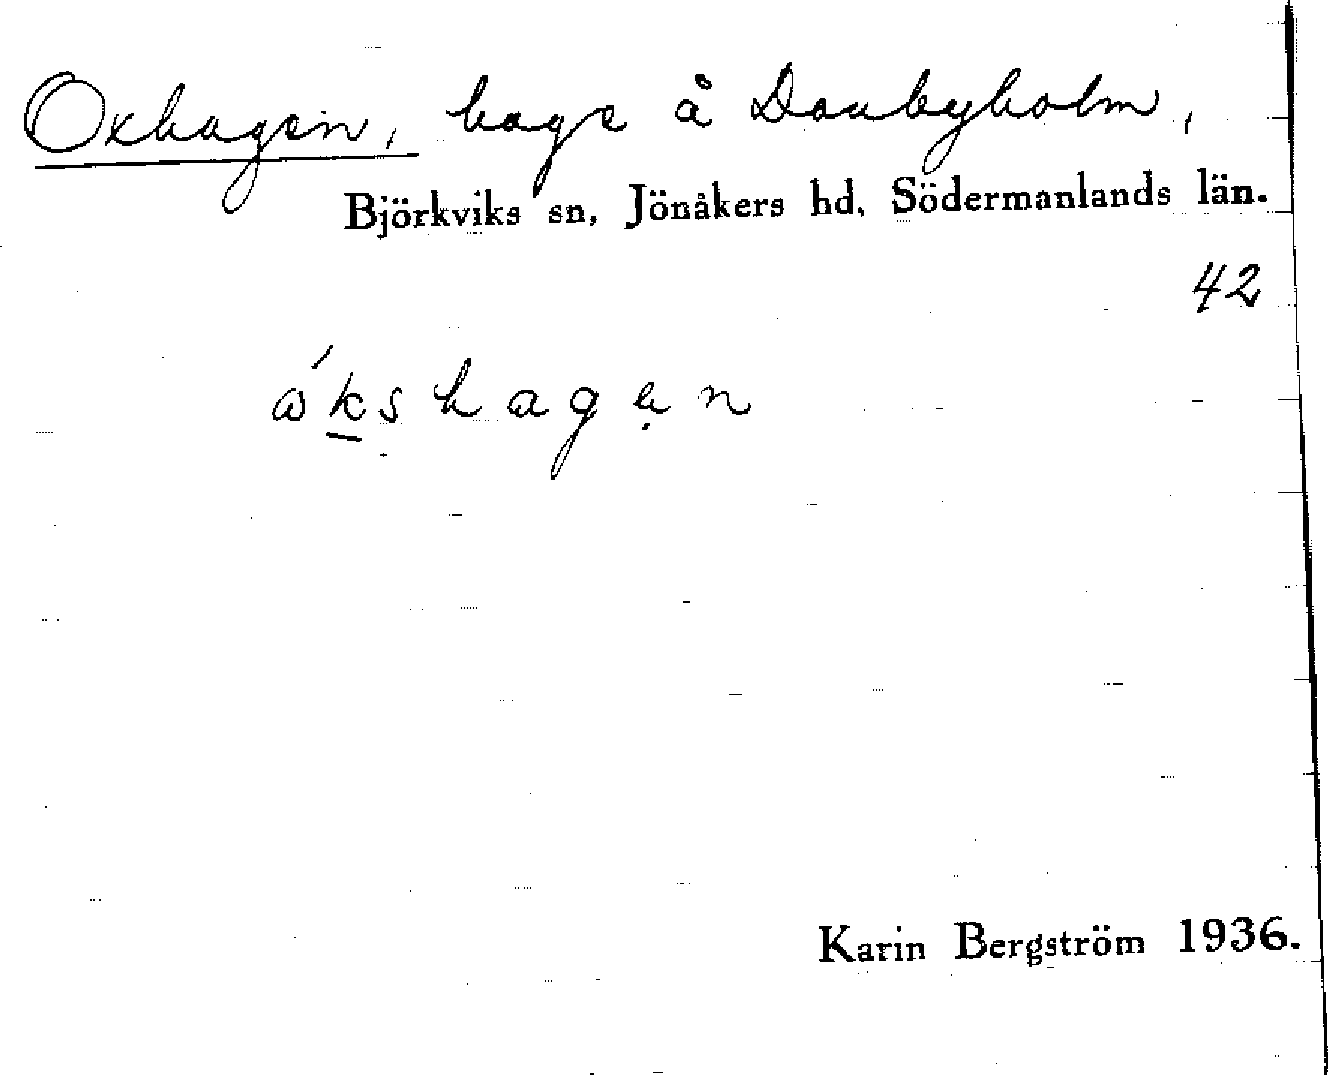 Oxhagen, hage å Danbyholm,
Björkviks sn, Jönåkers hd, Södermanlands län.
42
Karin Bergström 1936.